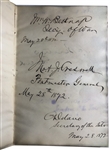 Wm W Belknap
Secy of War
Jno A J Creswell
Postmaster General
May 25th 1872
C Delano
Secretary of the Interior
May 28 1872